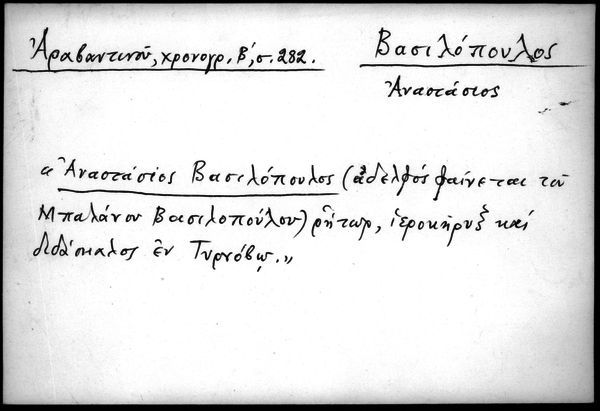 Ἀραβαντινοῦ, χρονογρ. Β΄, σ. 282.
Βασιλόπουλος
Ἀναστάσιος
« Ἀναστάσιος Βασιλόπουλος (ἀδελφός φαίνεται τοῦ
Μπαλάνου Βασιλοπούλου) ρήτωρ, ἱεροκῆρυξ καί
διδάσκαλος ἐν Τυρνόβῳ. »